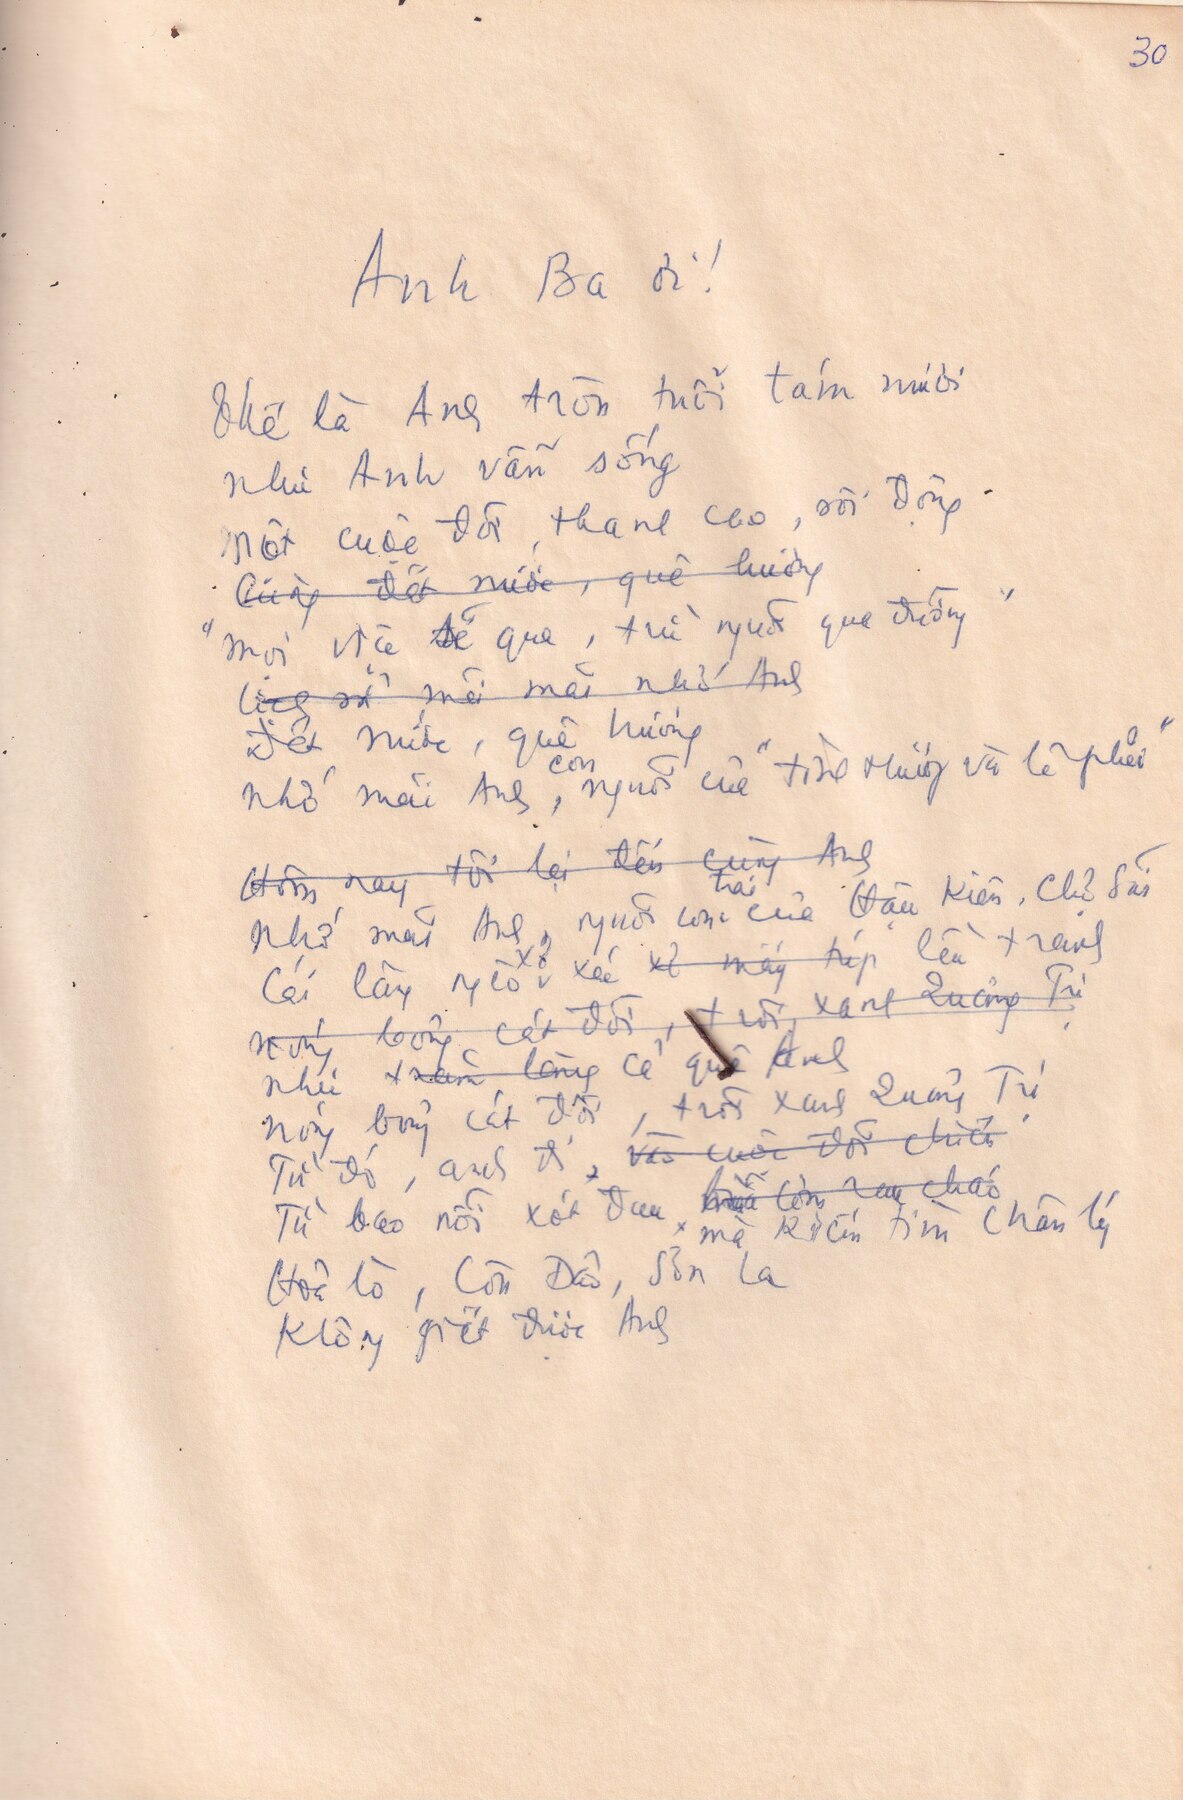 30
Anh Ba ơi!
Thế là Anh tròn tuổi tám mươi
như Anh vẫn sống
Một cuộc đời, thanh cao, sôi động
Cùng đất nước, quê hương
"mọi việc để qua, trừ người qua đường"
Lịch sử mãi mãi nhớ Anh
Đất nước, quê hương
con
nhớ mãi Anh, người của "tình thương và lẽ phải"
Hôm nay tôi lại đến cùng Anh
trai
nhớ mãi Anh, người con của Hậu Kiên, Chợ Sãi
xơ
Cái làng nghèo xác xơ mấy túp lều tranh
nóng bỏng cát đồi, trời xanh Quảng Trị
như trăm làng cả quê Anh
nóng bỏng cát đồi, trời xanh Quảng Trị
Từ đó, anh đi, vào cuộc đời chiến
Từ bao nỗi xót đau, bữa cơm rau cháo
mà kiếm tìm chân lý
Hoả lò, Côn Đảo, Sơn La
Không giết được Anh